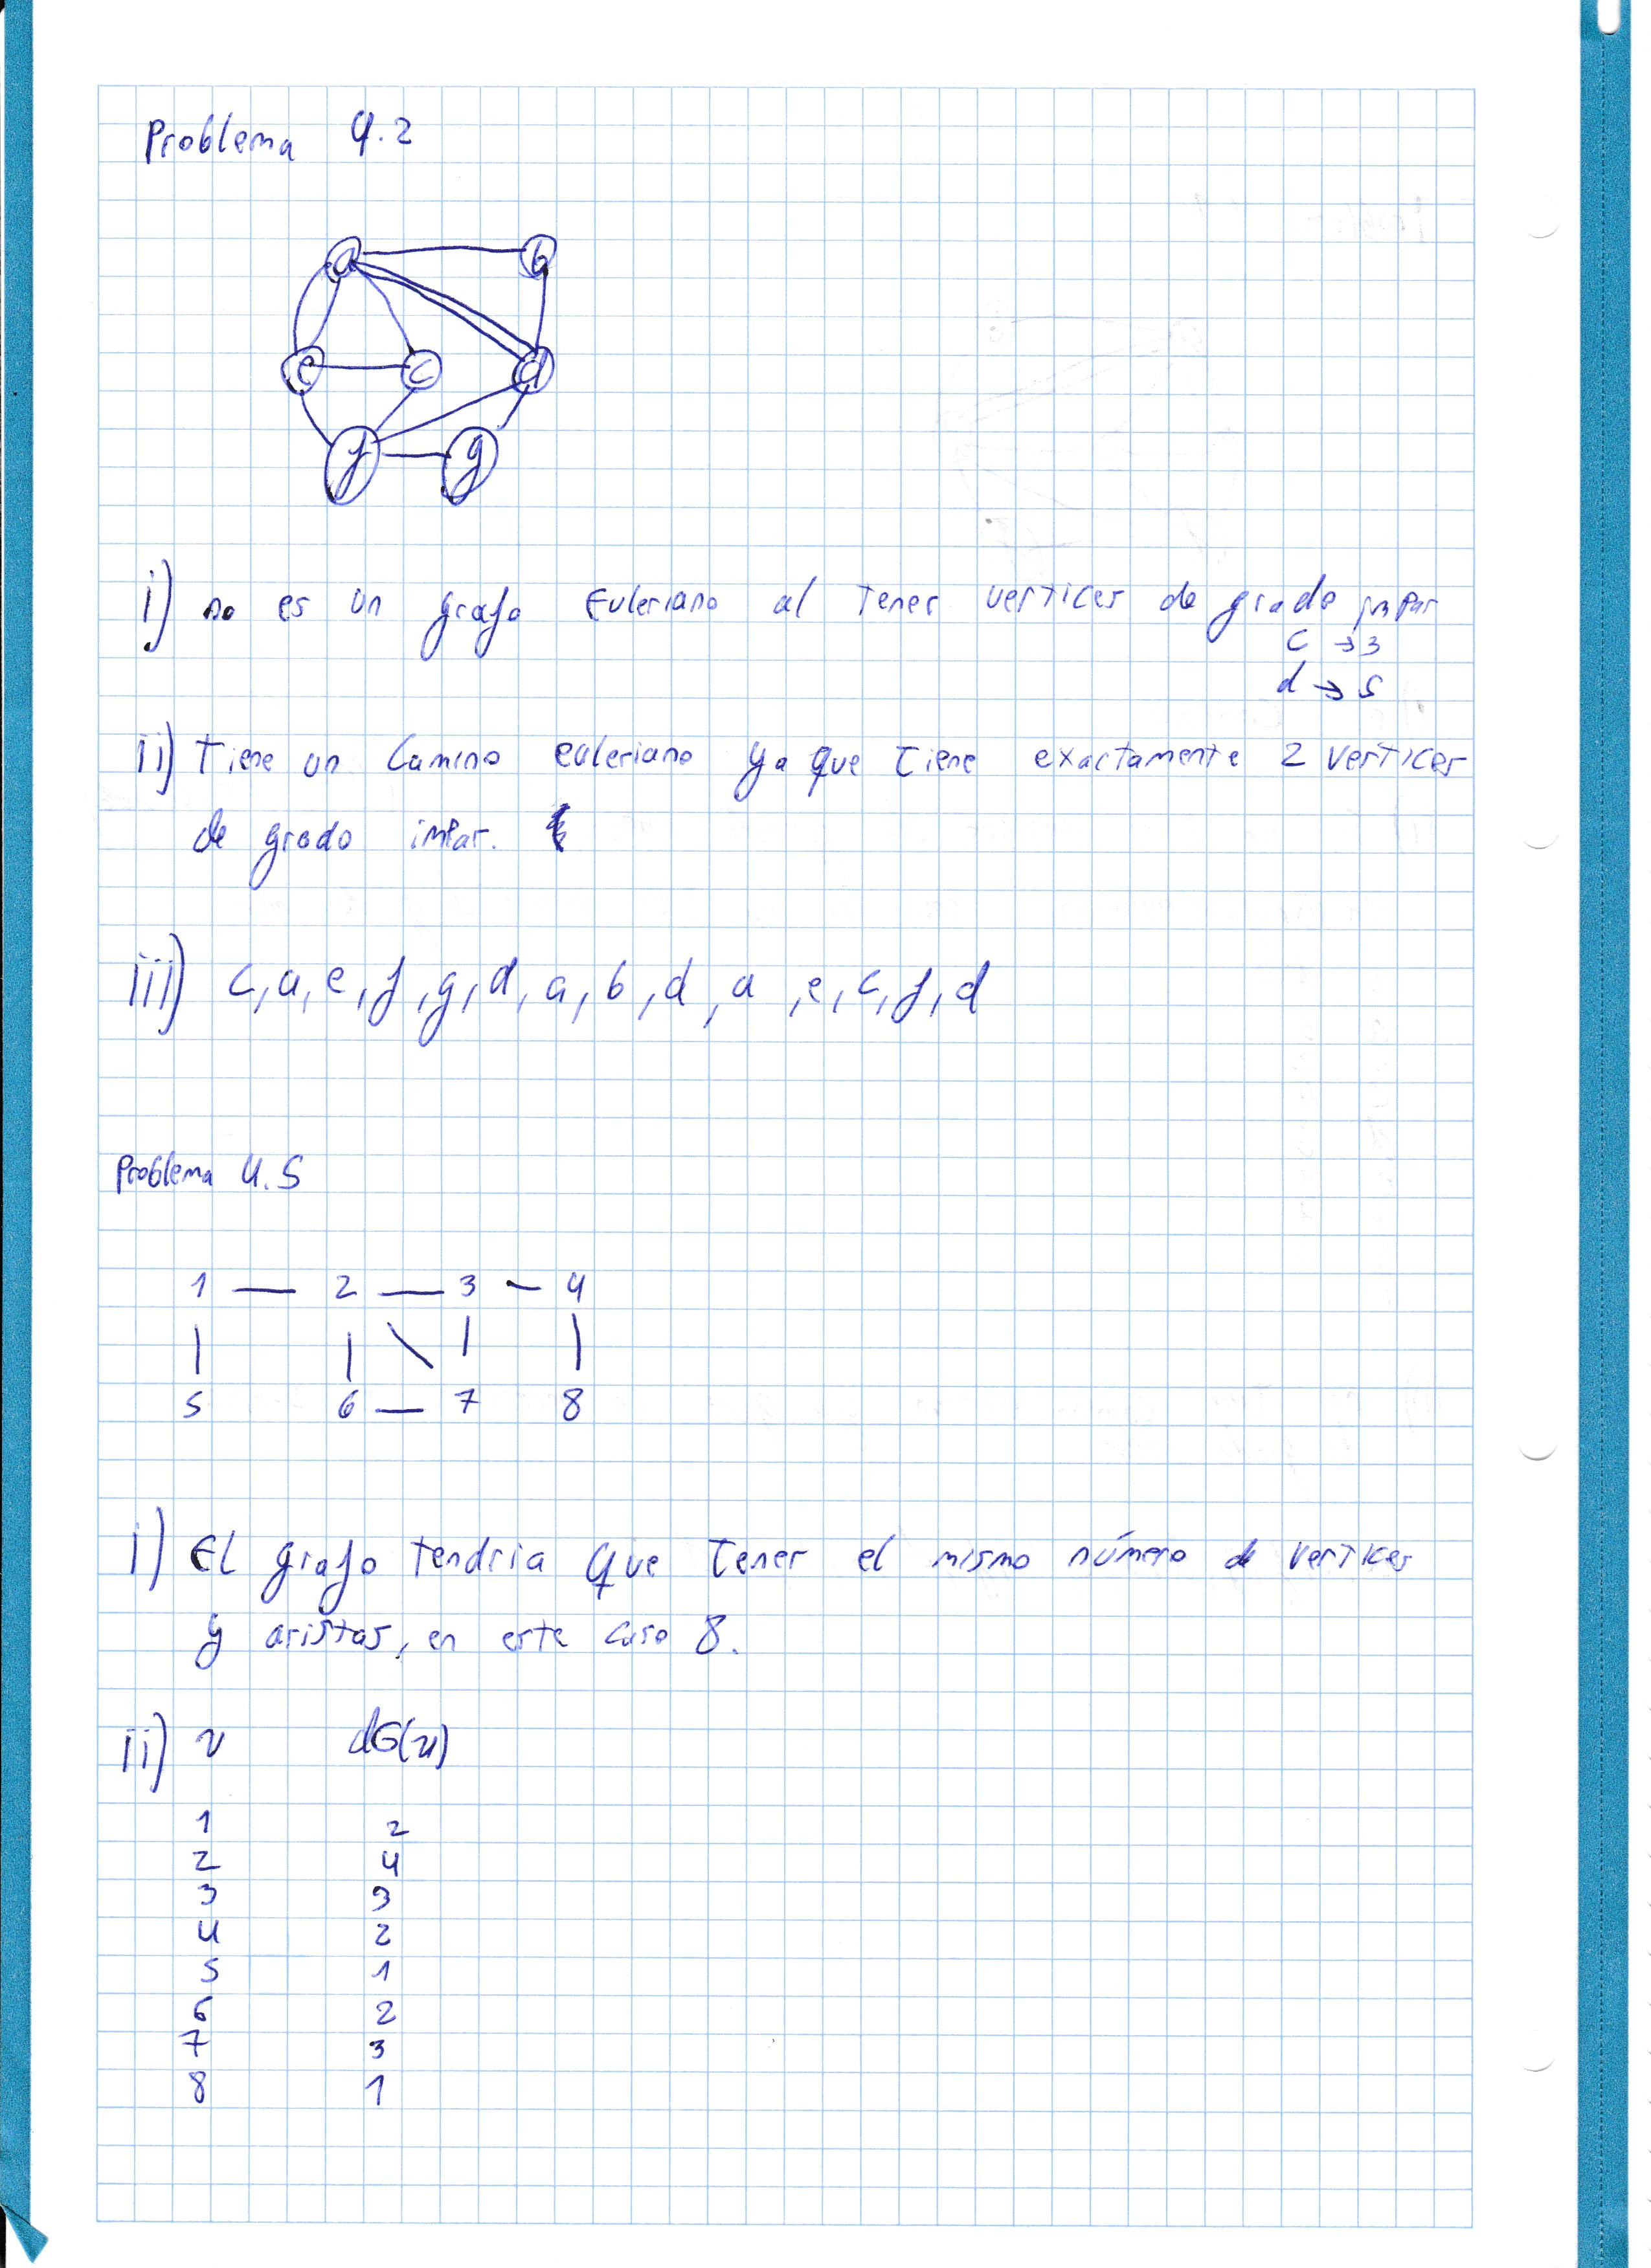 Problema 4.2
a b
e c d
f g
i) no es un grafo Euleriano al tener vertices de grado impar
c → 3
d → 5
ii) Tiene un Camino euleriano ya que tiene exactamente 2 vertices
de grado impar.
iii) c, a, e, f, g, d, a, b, d, a, e, c, f, d
Problema 4.5
1 — 2 — 3 - 4
| | \ | |
5 6 — 7 8
i) El grafo tendria que tener el mismo número de vertices
y aristas, en este caso 8.
ii) v dG(v)
1 2
2 4
3 3
4 2
5 1
6 2
7 3
8 1